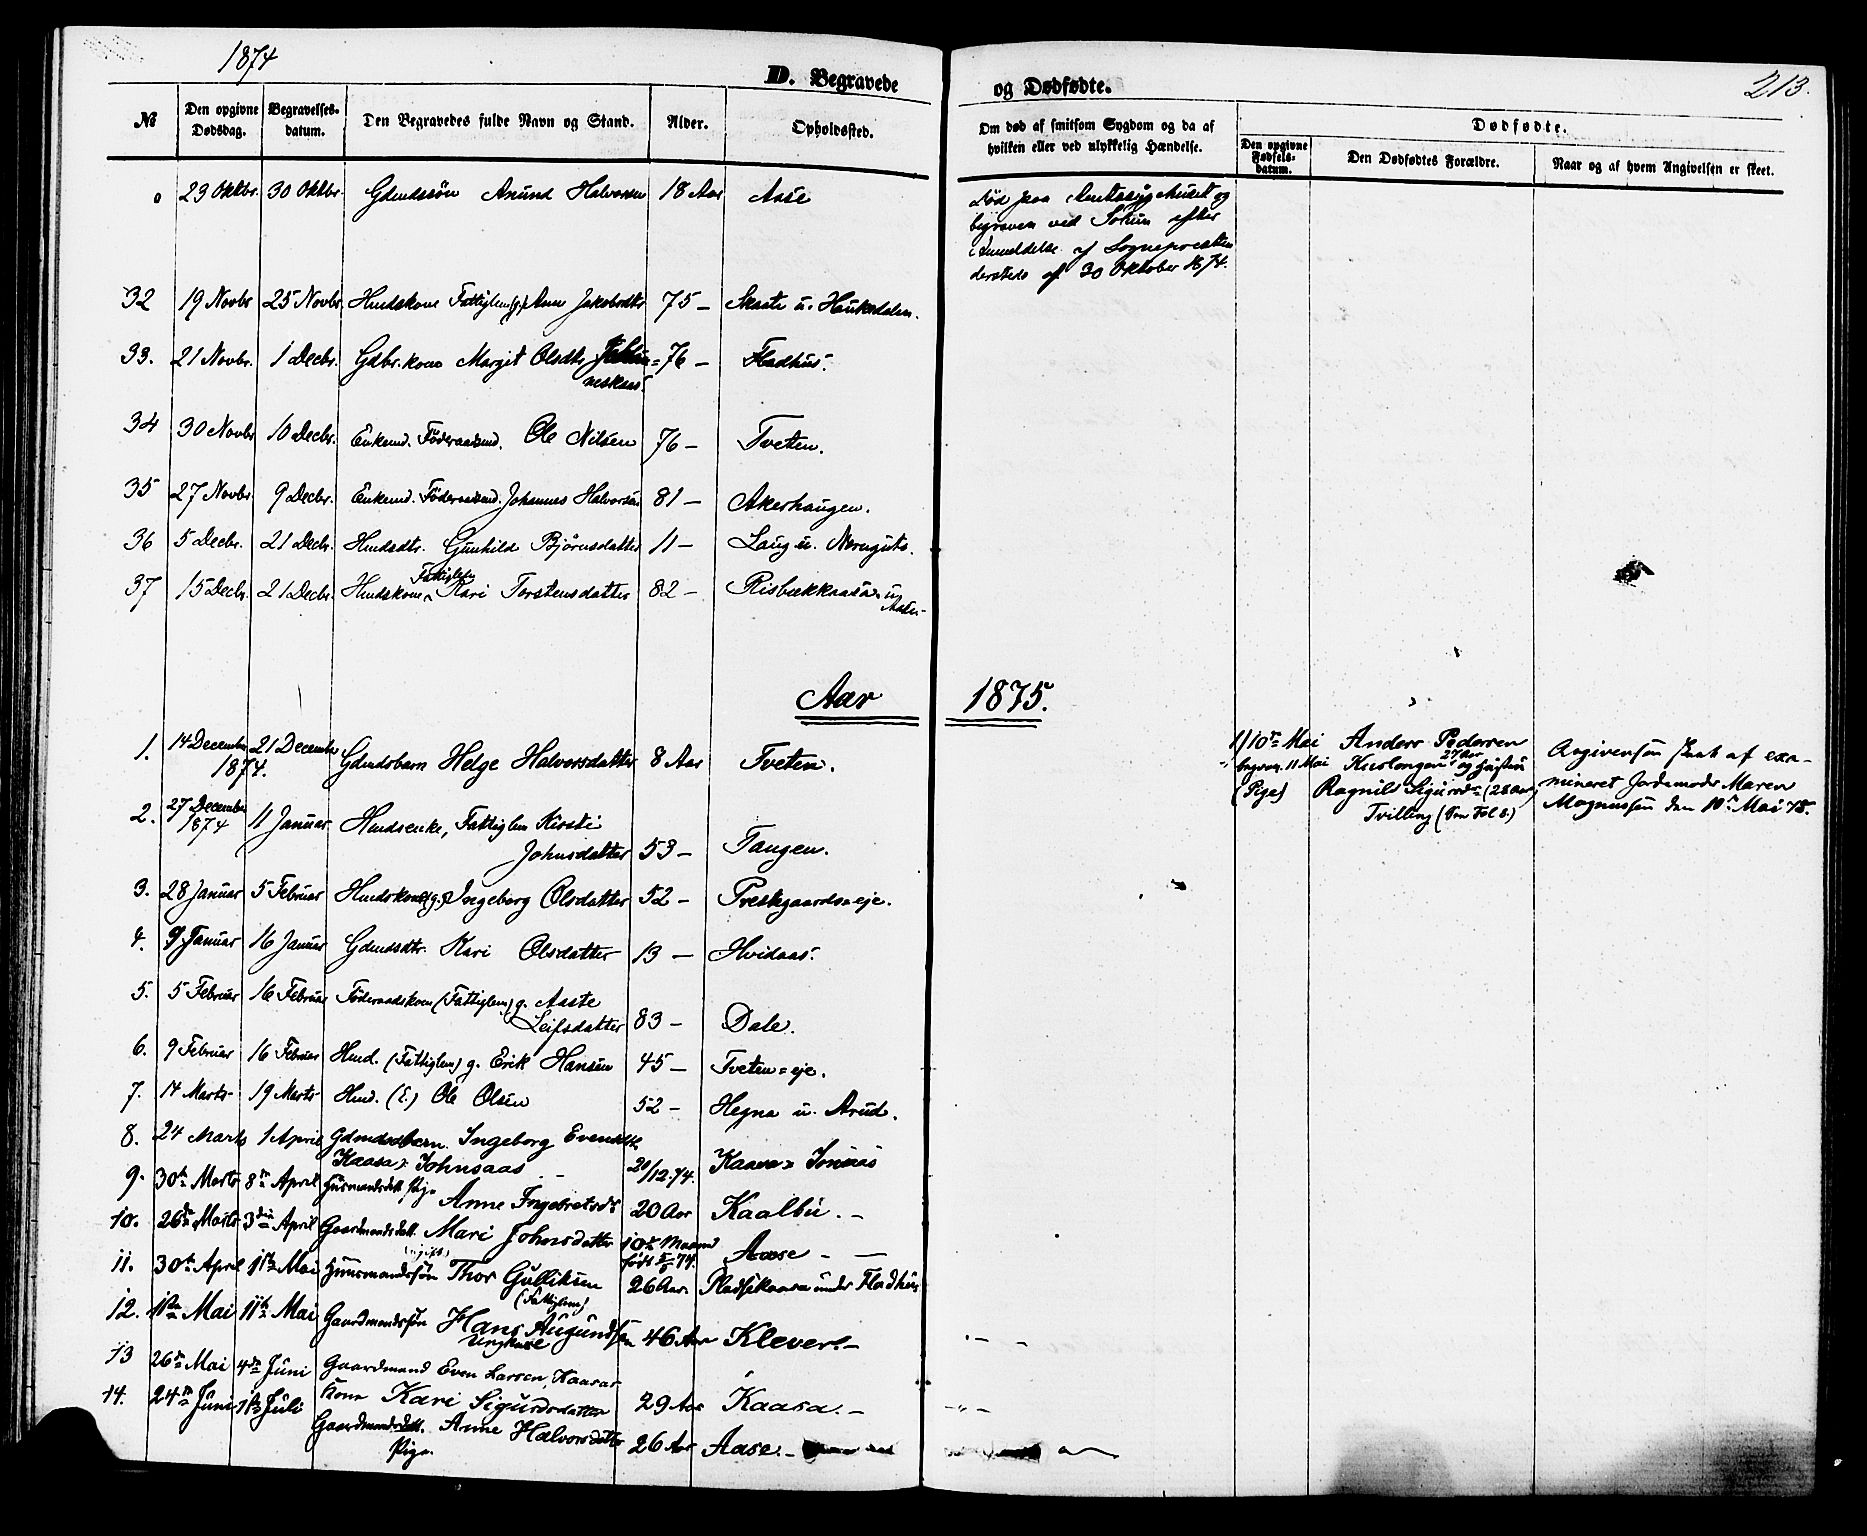 1874
D. Begravede og Dødfødte.
213.
№ Den opgivne Dødsdag. Begravelses-datum. Den Begravedes fulde Navn og Stand. Alder. Opholdssted. Om død af smitsom Sygdom og da af hvilken eller ved ulykkelig Hændelse. Dødfødte.
Den opgivne Fødsels-datum. Den Dødfødtes Forældre. Naar og af hvem Angivelsen er skeet.
0 23 Oktbr. 30 Oktbr. Gdmdssøn Anund Halvorsen 18 Aar Aase
Død paa Amtssygehuset og
begraven ved Solum efter
Anmeldelse af Sognepræsten
dersteds af 30 Oktober 1874.
32 19 Novbr 25 Novbr. Hmdskone Fattiglem (g.) Anne Jakobsdtr 75 – Skaate u. Haukedalen.
33. 21 Novbr. 1 Decbr. Gdbr.kone Margit Olsdtr 76 – Fladhus.
neskaas.
34 30 Novbr 10 Decbr. Enkemd. Föderaadsmd. Ole Nilsen 76 – Tveten.
35 27 Novbr. 9 Decbr. Enkemd. Föderaadsmd. Johannes Halvorsen 81 – Akerhaugen.
36 5 Decbr. 21 Decbr. Hmdsdtr. Gunhild Bjørnsdatter 11 – Laug u. Nerigute.
37 15 Decbr. 21 Decbr. Hmdskone Fattiglem Kari Torstensdatter 82 – Risbækkaasa u
Aar 1875.
1. 14 December 1874. 21 December Gdmdsbarn Helge Halvorsdatter 8 Aar Tveten.
1) 10de Mai Anders Pedersen
begrav. 11 Mai 27 Aar og Hustru
(Pige) Ragnild Sigursdr (28 Aar)
Tvilling
Angivelsen skeet af exa-
mineret Jordemoder Maren
Magnussen den 10de Mai 75.
2. 27 December 1874 11 Januar Hmdsenke, Fattiglem Kirsti
Johnsdatter 53 – Tangen.
3. 28 Januar 5 Februar Hmdskone (g.) Ingeborg Olsdatter 52 – Prestgaards=eje.
4. 9 Januar 16 Januar Gdmdsdtr. Kari Olsdatter 13 – Hvidaas.
5. 5 Februar 16 Februar Föderaadskone (Fattiglem) g. Aaste
Leifsdatter 83 – Dale.
6. 9 Februar 16 Februar Hmd. (Fattiglem) g. Erik Hansen 45 – Tveten=eje.
7. 14 Marts 19 Marts Hmd. (E.) Ole Olsen 52 – Hegna u. Arud.
8. 24 Marts 1 April Gdmdsbarn Ingeborg Evensdtr
Kaasa, Johnsaas 20/12.74. Kaasa
9. 30te Marts 8de April Husmandsdatt. Pige Anne Ingebretsdr 20 Aar Kaalbu. –
10. 26de Marts 3die April Gaardmandsdatt. Mari Johnsdatter 10de Maaned Aase – –
11. 30te April 11te Mai Huusmandssøn Thor Gulliksen 26 Aar. Pladsen Kaasa under Fladhus
(Fattiglem)
12. 1ste Mai 11te Mai Gaardmandssøn Hans Augundssen 46 Aar Klever. –
Ungkarl
13 26de Mai 4de Juni Gaardmand Even Larsen, Kaasas
Kone Kari Sigurdsdatter 29 Aar Kaasa. –
14. 24de Juni 1ste Juli Gaardmandsdatt. Anne Halvorsdatter 26 Aar Aase. –
Pige.